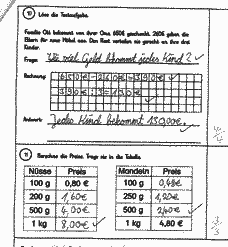 10 Löse die Textaufgabe.
Familie Ott bekommt von ihrer Oma 650€ geschenkt. 260€ geben die
Eltern für neue Möbel aus. Den Rest verteilen sie gerecht an ihre drei
Kinder.
Frage: Wie viel Geld bekommt jedes Kind?
Rechnung: 650€-260€=390€
390:3=130€
Antwort: Jedes Kind bekommt 130,00€.
11 Berechne die Preise. Trage sie in die Tabelle
Nüsse Preis Mandeln Preis
100 g 0,80 € 100 g 0,48€
200 g 1,60€ 250 g 1,20€
500 g 4,00€ 500 g 2,40€
1 kg 8,00€ 1 kg 4,80 €